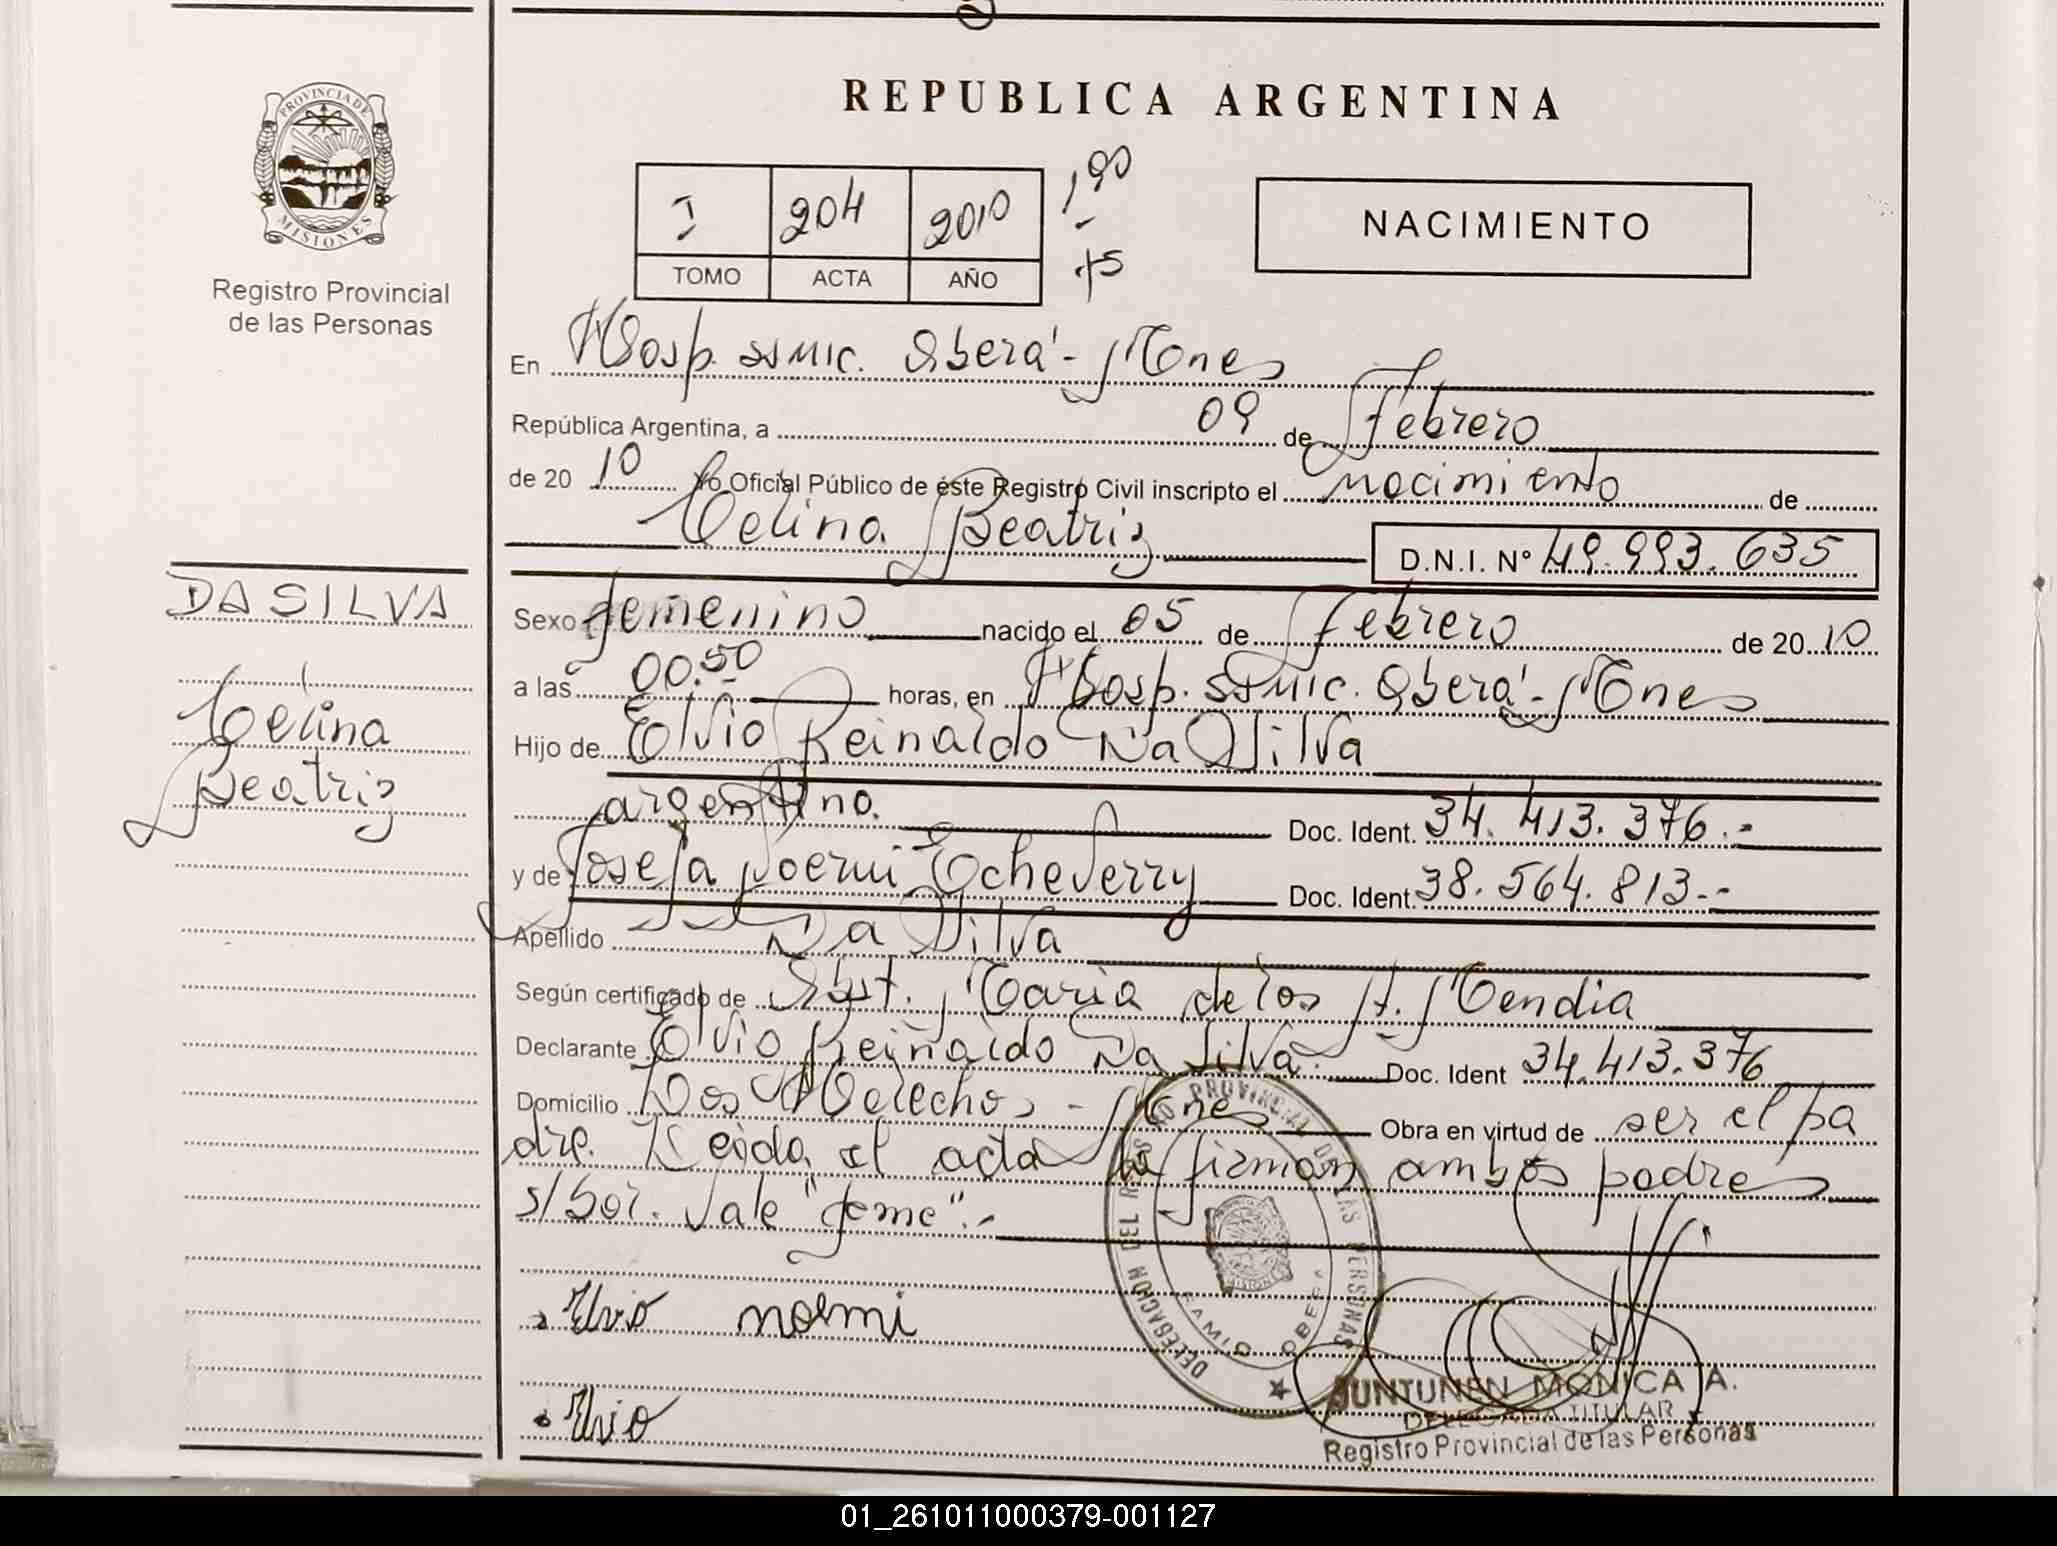 REPUBLICA ARGENTINA
PROVINCIA DE
MISIONES
Registro Provincial
de las Personas
I 204 2010
TOMO ACTA AÑO
NACIMIENTO
En Hosp. SSMIC. Oberá - Mnes
República Argentina, a 09 de Febrero
de 20 10 Yo Oficial Público de éste Registro Civil inscripto el nacimiento de
Celina Beatriz D.N.I. Nº 49.993.635
DA SILVA
Celina
Beatriz
Sexo femenino nacido el 05 de Febrero de 20 10
a las 00.50 horas, en Hosp. SSMIC. Oberá - Mnes
Hijo de Elvio Reinaldo Da Silva
argentino. Doc. Ident. 34.413.376.-
y de Josefa Noemi Echeverry Doc. Ident. 38.564.813.-
Apellido Da Silva
Según certificado de Obst. Maria de los A. Mendia
Declarante Elvio Reinaldo Da Silva. Doc. Ident 34.413.376
Domicilio Dos Arroyos - Mnes Obra en virtud de ser el pa
dre. Leida el acta la firman ambos padres
s/bor. Vale "feme".-
Elvio noemi
Elvio
DELEGACION DEL REGISTRO PROVINCIAL DE LAS PERSONAS
OBERA
JUNTUNEN MONICA A.
DELEGADA TITULAR
Registro Provincial de las Personas
01_261011000379-001127